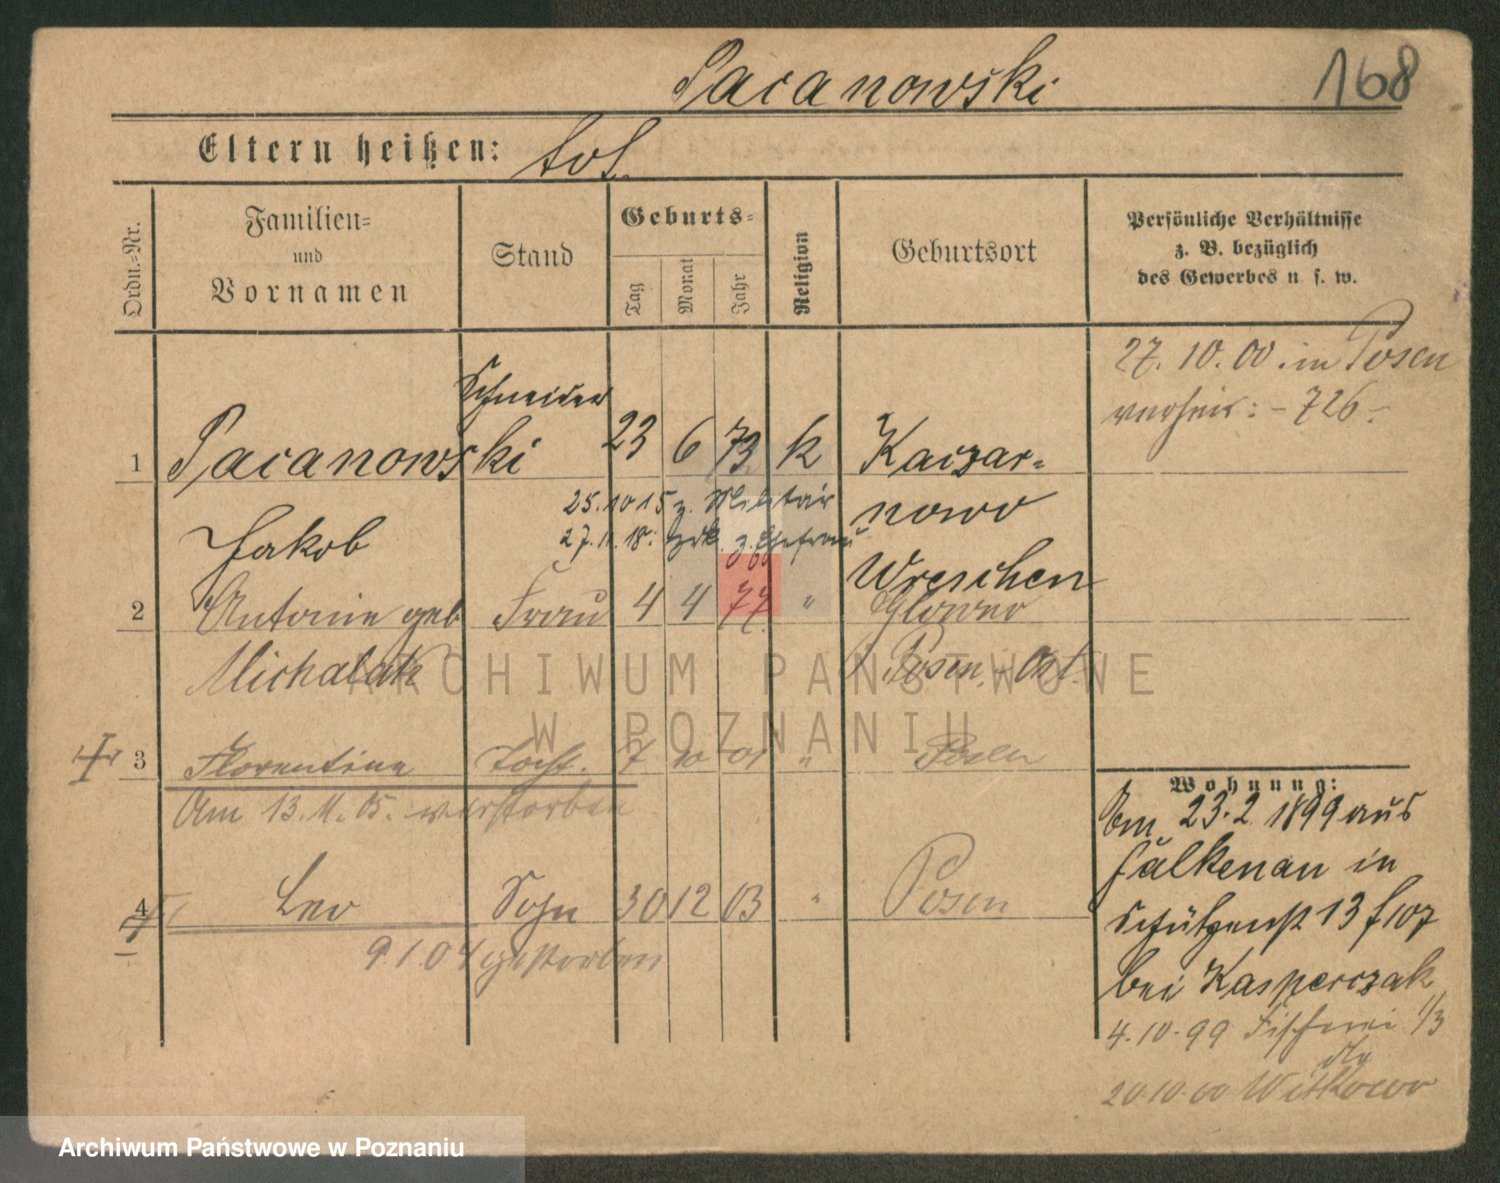 Pacanowski 168
Eltern heißen: tot.
Ordn.-Nr.
Familien-
und
Vornamen
Stand
Geburts-
Tag
Monat
Jahr
Religion
Geburtsort
Persönliche Verhältnisse
z. B. bezüglich
des Gewerbes u. s. w.
27. 10. 00. in Posen
verheir: - 726 -
Schneider
1 Pacanowski 23 6 73 k Kaczar-
Jakob
25. 10 15 z. Militär
nowo
27. 11. 18. zrk. z. Ehefrau
Wreschen
2 Antonie geb Frau 4 4 77 " Glowno
Michalak Posen. - Ost.
3 Florentine Tocht. 7 10 01 " Posen
Am 13. 11. 05. verstorben
4 Leo Sohn 30 12 03 " Posen
9. 1. 04 gestorben
Wohnung:
Am 23. 2. 1899 aus
Falkenau in
Schützenst 13 f 107
bei Kasperczak
4. 10. 99 Fischerei 1/3
20. 10. 00 Witkowo
ARCHIWUM PAŃSTWOWE
W POZNANIU
Archiwum Państwowe w Poznaniu